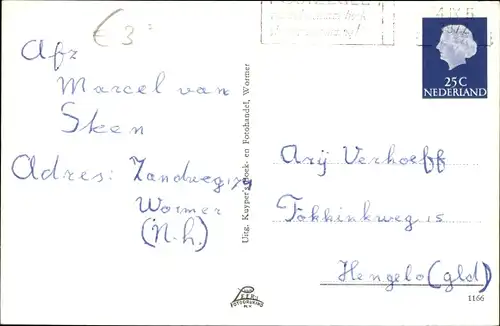 € 3:
Afz
Marcel van
Steen
Adres: Zandweg 79
Wormer
(N.h.)
Uitg. Kuyper's Boek- en Fotohandel, Wormer
25 C
NEDERLAND
Arij Verhoeff
Tokkinkweg 15
Hengelo (gld)
FOTODRUKKERIJ
1166